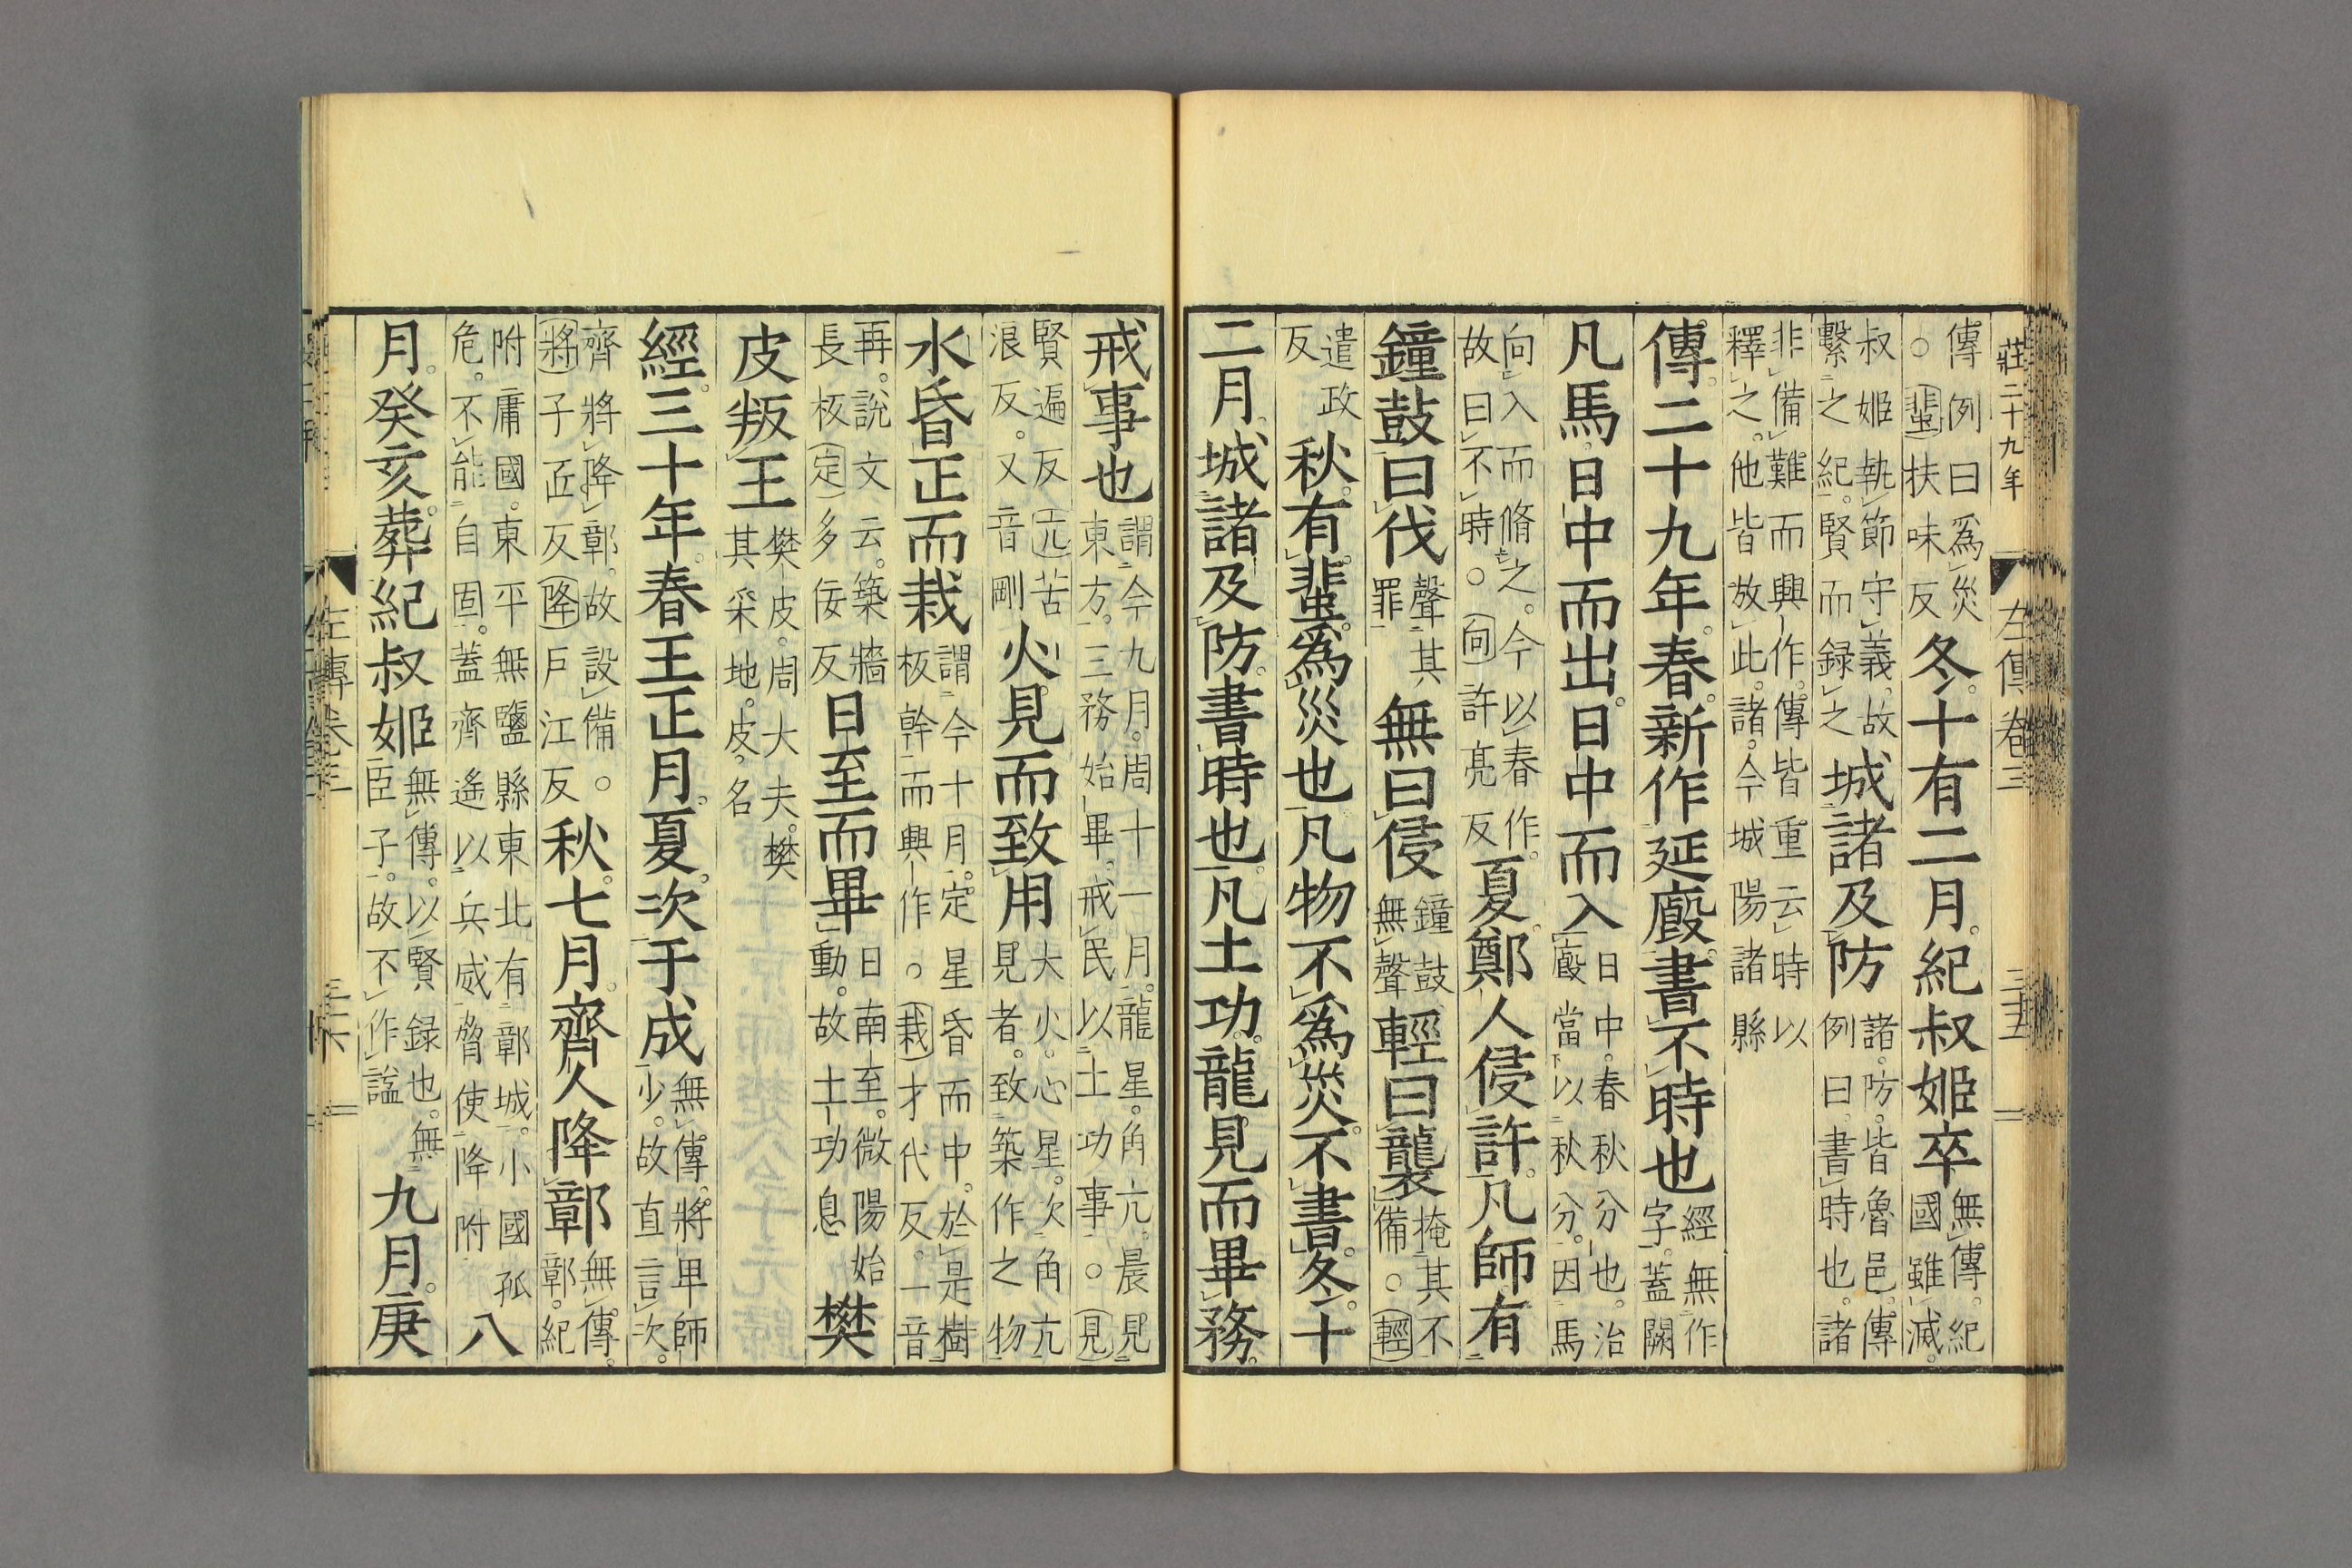 莊二十九年
左傳卷三
三十五
傳例曰爲災
○蜚扶味反
冬十有二月紀叔姬卒
無傳紀
國雖滅
叔姬執節守義故
繫之紀賢而録之
城諸及防
諸防皆魯邑傳
例曰書時也諸
非備難而興作傳皆重云時以
釋之他皆放此諸今城陽諸縣
傳二十九年春新作延廄書不時也
經無作
字蓋闕
凡馬日中而出日中而入
日中春秋分也治
廄當以秋分因馬
向入而脩之今以春作
故曰不時○向許亮反
夏鄭人侵許凡師有
鐘鼓曰伐
聲其
罪
無曰侵
鐘鼓
無聲
輕曰襲
掩其不
備○輕
遣政
反
秋有蜚爲災也凡物不爲災不書冬十
二月城諸及防書時也凡土功龍見而畢務
戒事也
謂今九月周十一月龍星角亢晨見
東方三務始畢戒民以土功事○見
賢遍反亢苦
浪反又音剛
火見而致用
大火心星次角亢
見者致築作之物
水昏正而栽
謂今十月定星昏而中於是樹
板幹而興作○栽才代反一音
再說文云築牆
長板定多佞反
日至而畢
日南至微陽始
動故土功息
樊
皮叛王
樊皮周大夫樊
其采地皮名
經三十年春王正月夏次于成
無傳將卑師
少故直言次
齊將降鄣故設備○
將子匠反降戶江反
秋七月齊人降鄣
無傳
鄣紀
附庸國東平無鹽縣東北有鄣城小國孤
危不能自固蓋齊遙以兵威脅使降附
八
月癸亥葬紀叔姬
無傳以賢録也無
臣子故不作諡
九月庚
左傳卷三
三十六